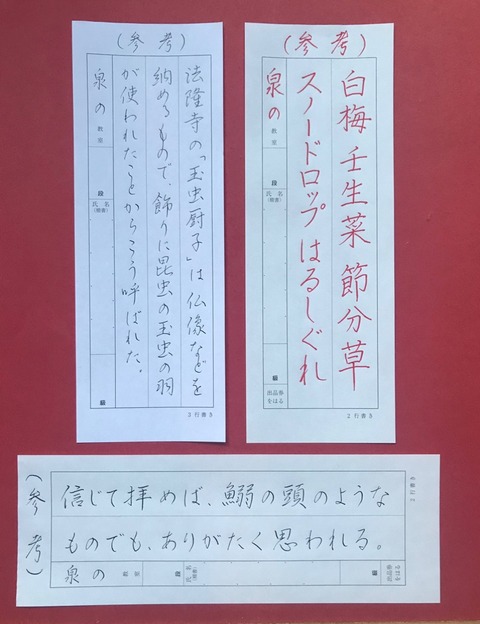 (参考)
法隆寺の「玉虫厨子」は仏像などを
納めるもので、飾りに昆虫の玉虫の羽
が使われたことからこう呼ばれた。
泉の 教室 段 氏名(楷書) 級
3行書き
(参考)
白梅 壬生菜 節分草
スノードロップ はるしぐれ
泉の 教室 段 氏名(楷書) 級 出品券をはる
2行書き
(参考)
信じて拝めば、鰯の頭のような
ものでも、ありがたく思われる。
泉の 教室 段 氏名(楷書) 級 出品券をはる
2行書き